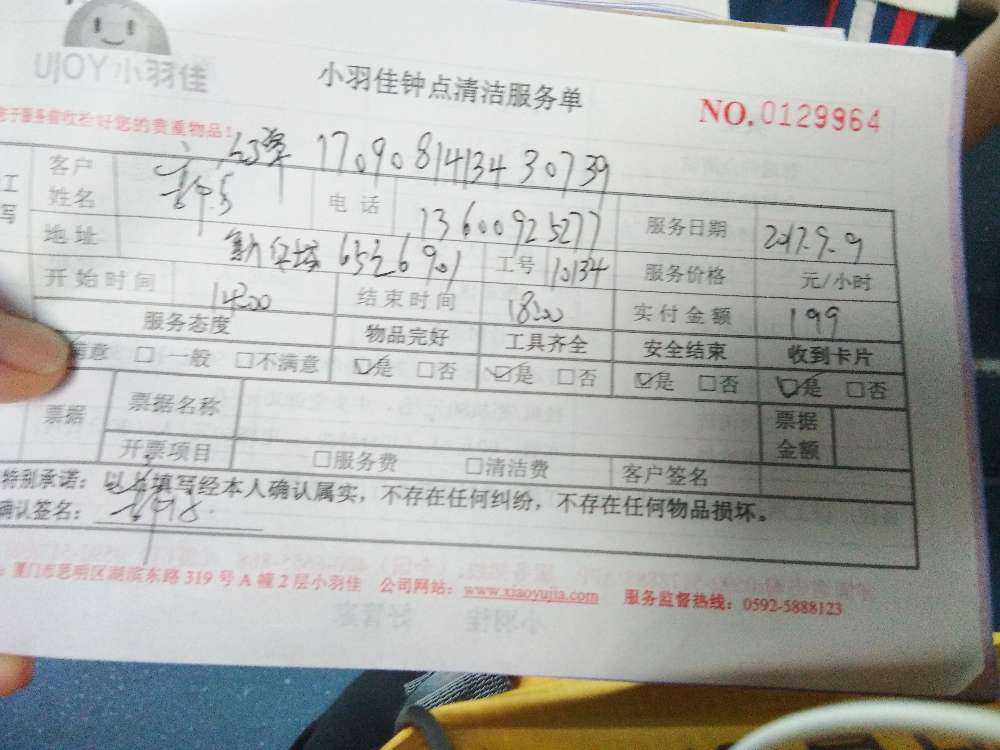 UJOY小羽佳
小羽佳钟点清洁服务单
NO.0129964
于服务前收拾好您的贵重物品!
订单 17090814134 30739
工 客户姓名 电话 13600925277 服务日期 2017.9.9
写
地址 6901 工号 10134 服务价格 元/小时
开始时间 14:00 结束时间 18:00 实付金额 199
服务态度 物品完好 工具齐全 安全结束 收到卡片
满意 □ 一般 □不满意 ☑是 □否 ☑是 □否 ☑是 □否 ☑是 □否
票据 票据名称 票据金额
开票项目 □服务费 □清洁费 客户签名
特别承诺：以上填写经本人确认属实，不存在任何纠纷，不存在任何物品损坏。
确认签名：
厦门市思明区湖滨东路319号A幢2层小羽佳 公司网站：www.xiaoyujia.com 服务监督热线：0592-5888123